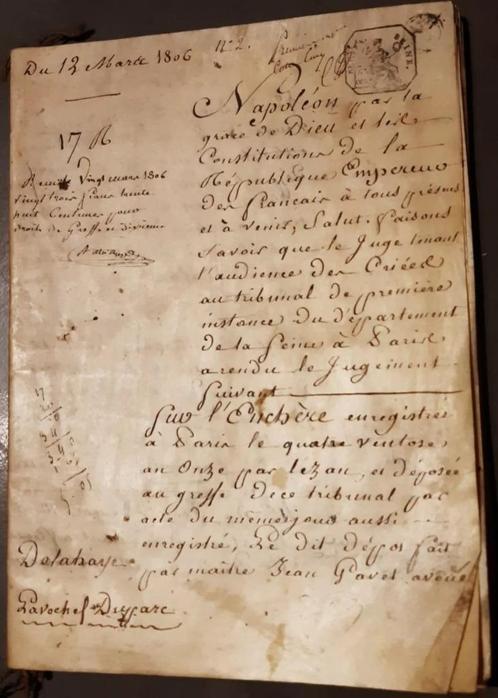 Du 12 Marte 1806
N.º 2.
SEINE.
17 R
Vingt mars 1806
vingt trois francs trente
huit Centimes pour
droits de Greffe et dixieme
Napoléon par la
grace de Dieu et les
Constitutions de la
République Empereur
des français à tous présens
et à venir, Salut. faisons
savoir que le Juge tenant
l'audience des Criées
au tribunal de première
instance du département
de la Seine à Paris,
a rendu le Jugement
Suivant
Sur l'Enchère enregistrée
à Paris le quatre ventose,
an Onze par Lezan, et déposée
au greffe de ce tribunal par
acte du même jour aussi
enregistré, Le dit dépos fait
par maitre Jean Pavet avoué
17
Delahaye
Lavochef Duparc